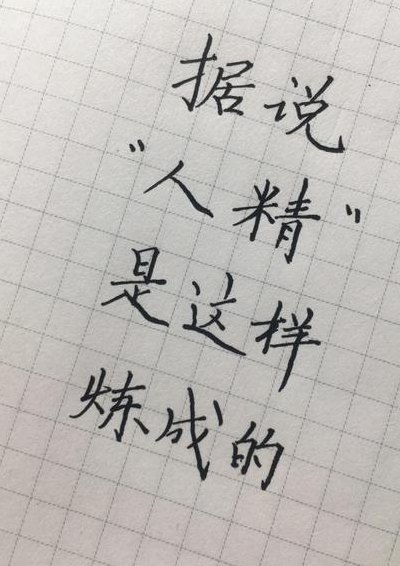 据说
“人精”
是这样
炼成的